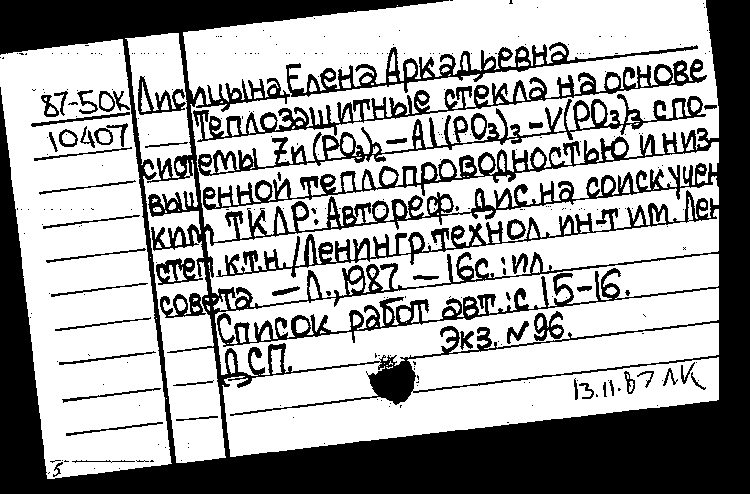 87-50К Лисицына, Елена Аркадьевна.
10407 Теплозащитные стекла на основе
системы Zn(PO₃)₂—Al(PO₃)₃—V(PO₃)₃ с по-
вышенной теплопроводностью и низ-
ким ТКЛР: Автореф. дис. на соиск. учен
степ. к.т.н. / Ленингр. технол. ин-т им. Лен
совета. — Л., 1987. — 16с.: ил.
Список работ авт.: с. 15-16.
ДСП. Экз. №96.
13.11.87 ЛК
5